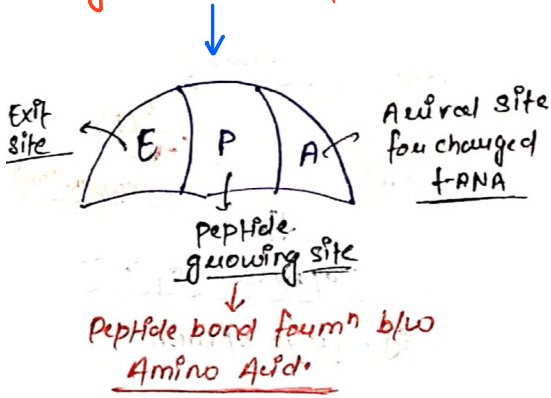 Exit
site
E
P
A
Arrival site
for charged
t-RNA
peptide
growing site
Peptide bond formⁿ b/w
Amino Acid.